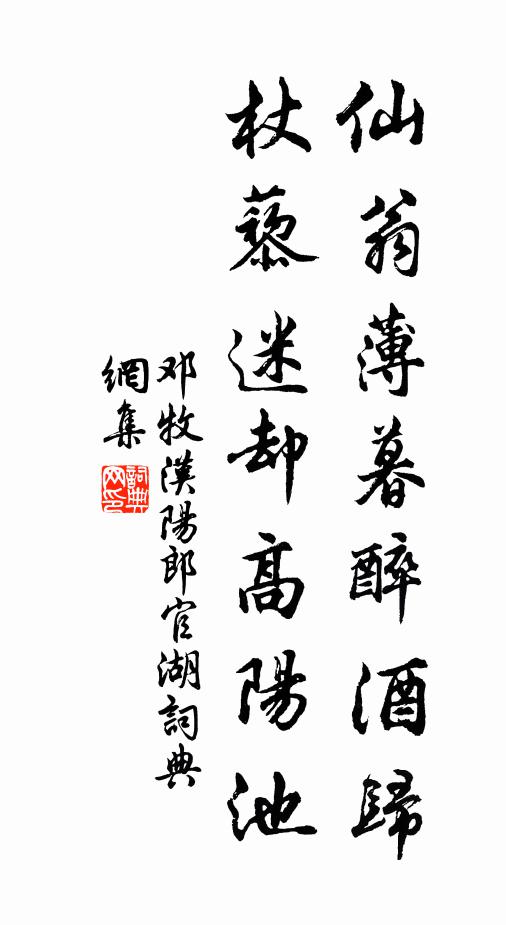 仙翁薄暮醉酒歸
杖藜迷却高陽池
邓牧漢陽郎官湖詞典
網集
詞典網印